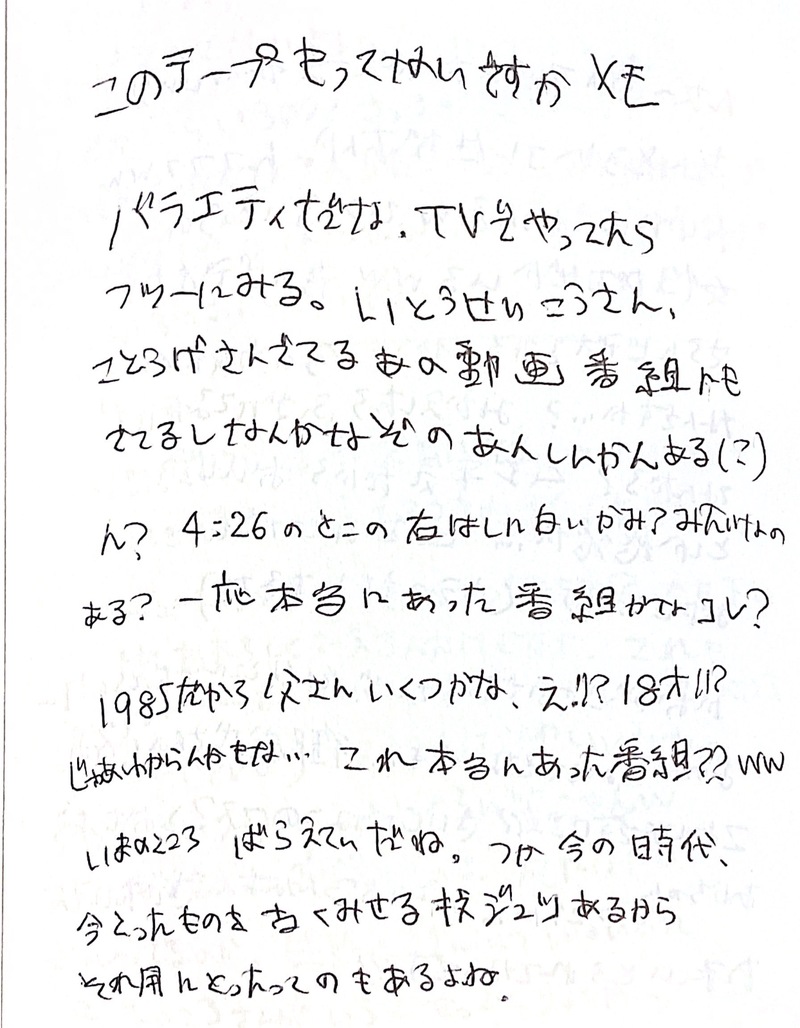 このテープもってないですか メモ
バラエティだな。TVでやってたら
フツーにみる。いとうせいこうさん、
ことろげさんでてる あの動画番組トも
さてるしなんかなぞのあんしんかんある(?)
ん? 4:26のとこの右はしに白いかみ?みたいなの
ある? 一応本当にあった番組がコレ?
1985だから父さんいくつかな、え!!?18才!!?
じゃあわからんかもな… これ本当にあった番組??ww
いまのところ ばらえてぃだね。つか今の時代、
今とったものを古くみせる技ジュツあるから
それ用にとったってのもあるよね。